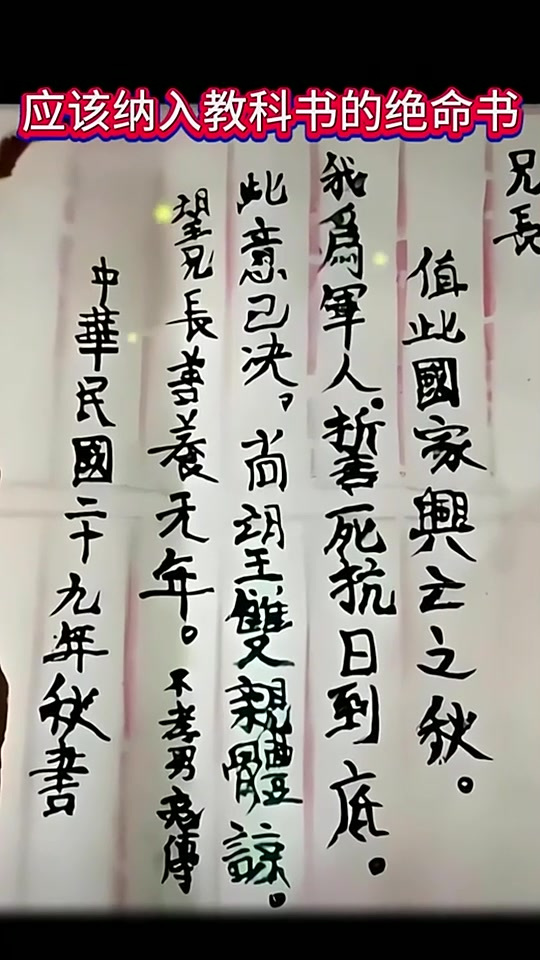 应该纳入教科书的绝命书
兄長
值此國家興亡之秋。
我為軍人.誓死抗日到底。
此意已决,尚望雙親體諒。
望兄長善養天年。不孝男 傳
中華民國二十九年秋書